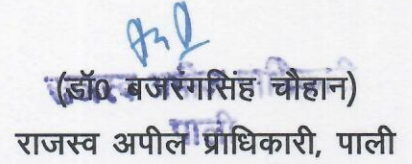 (डॉ० बजरंगसिंह चौहान)
राजस्व अपील प्राधिकारी, पाली